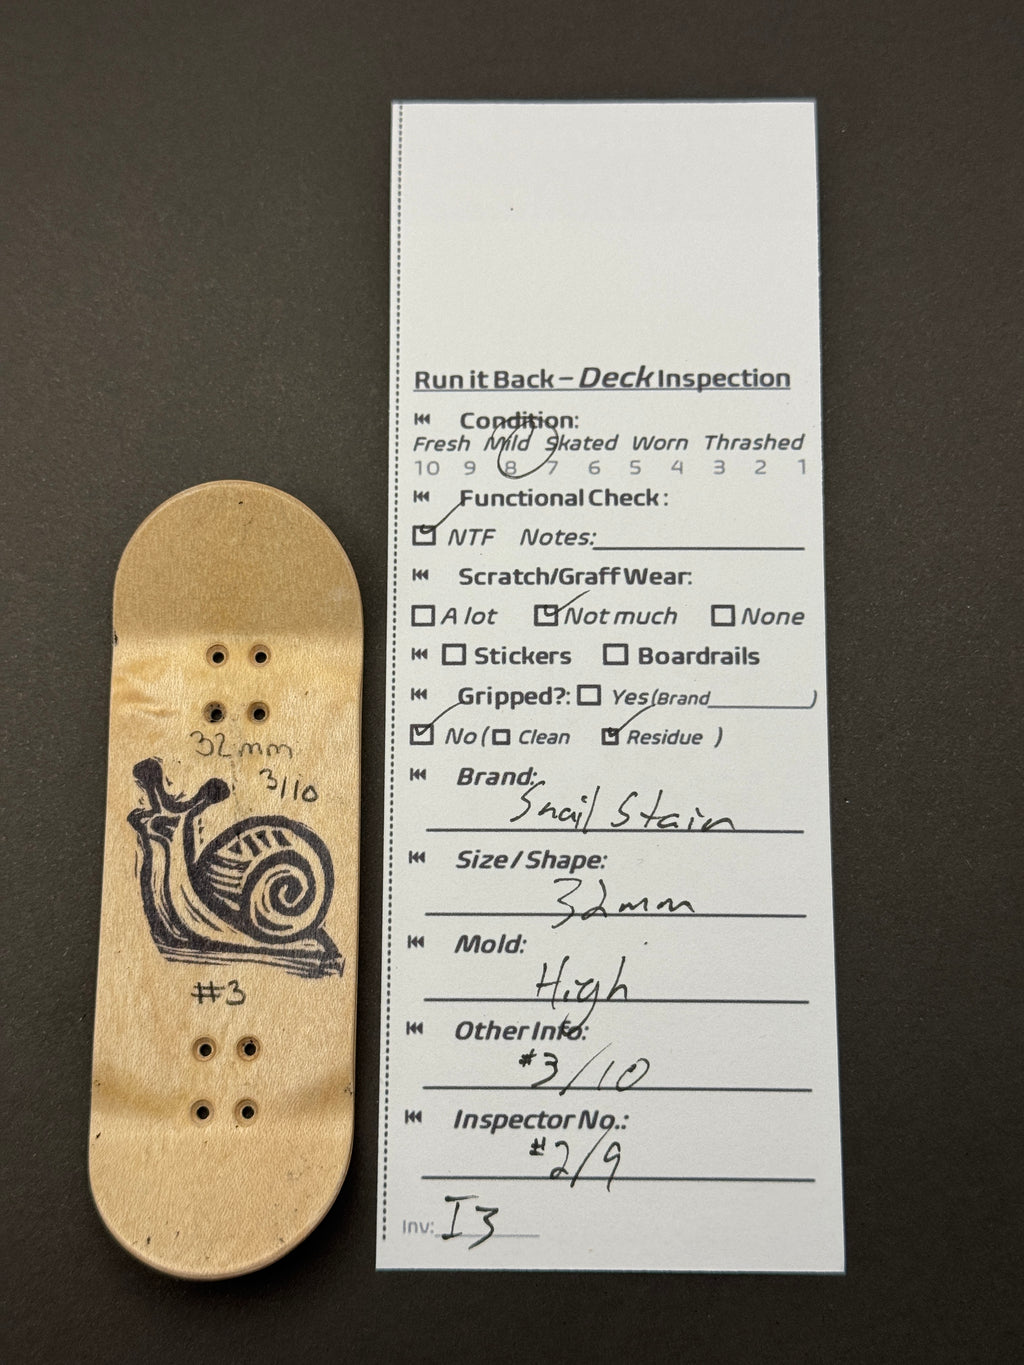 32mm
3/10
#3
Run it Back – Deck Inspection
Condition:
Fresh Mild Skated Worn Thrashed
10 9 8 7 6 5 4 3 2 1
Functional Check:
NTF Notes:
Scratch/Graff Wear:
A lot Not much None
Stickers Boardrails
Gripped?: Yes (Brand )
No ( Clean Residue )
Brand:
Snail Stain
Size / Shape:
32mm
Mold:
High
Other Info:
#3/10
Inspector No.:
#2/9
Inv: I3